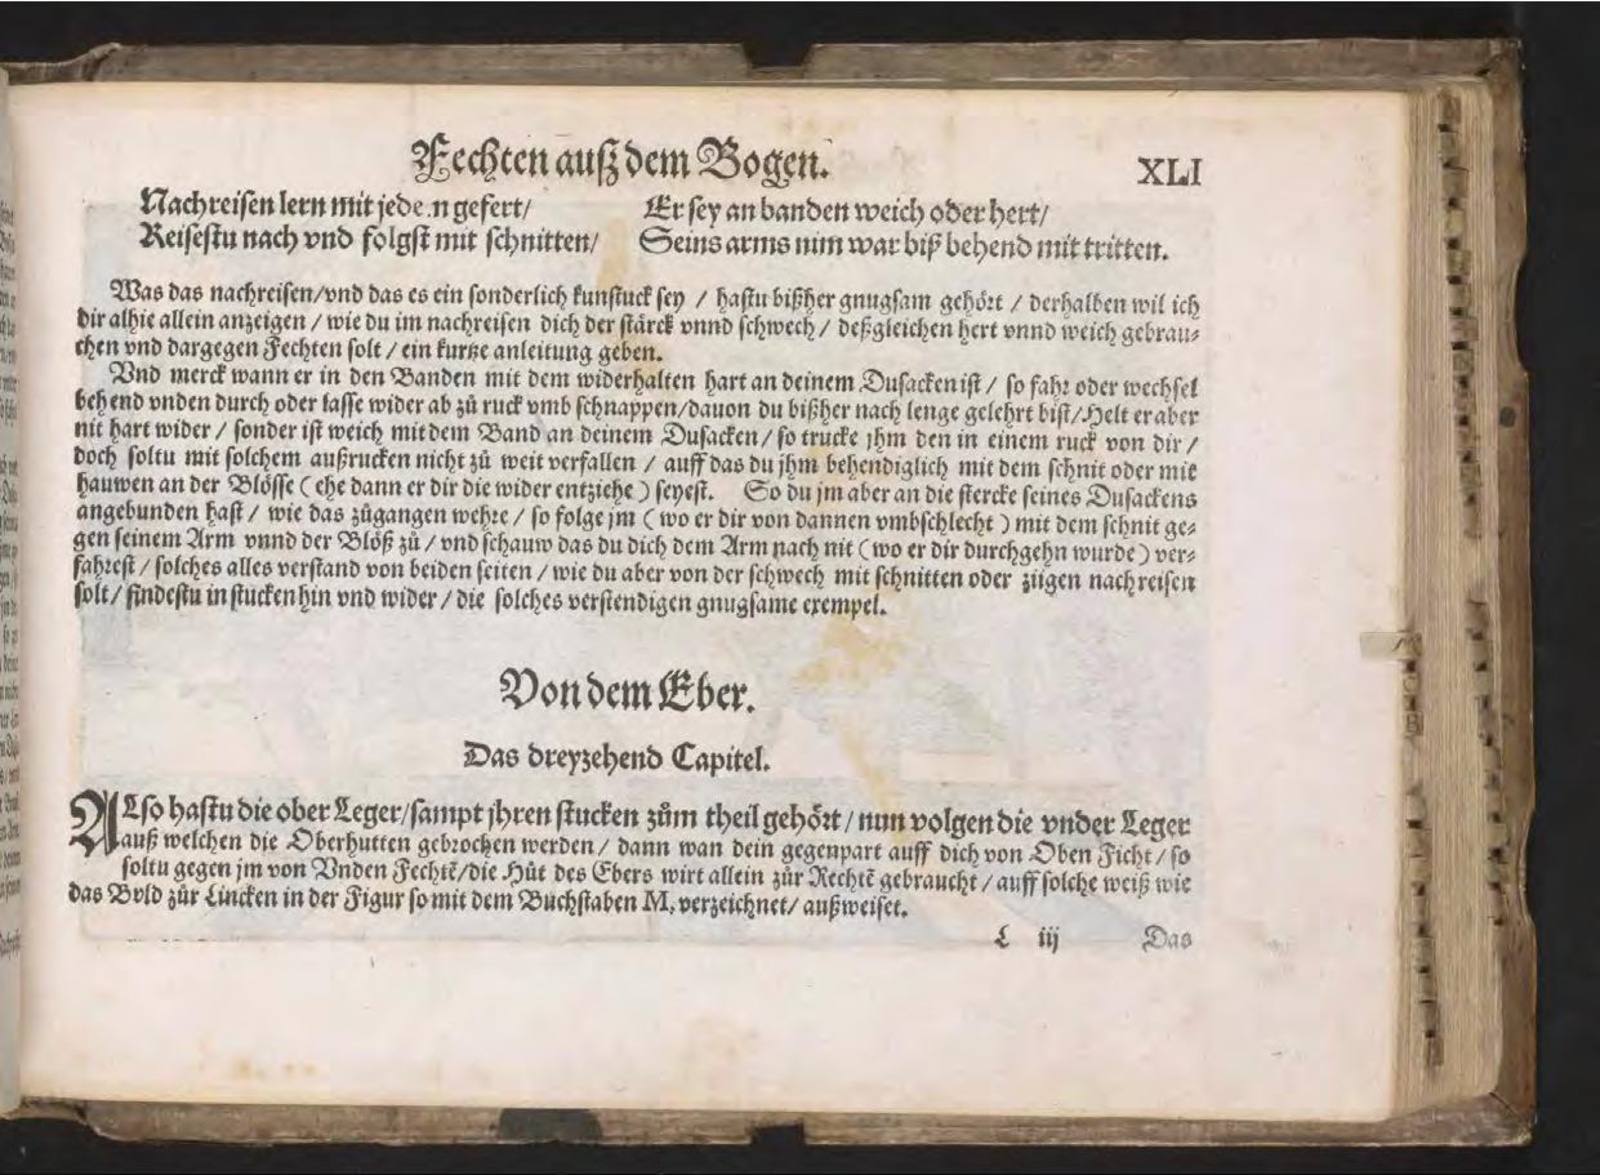 Fechten auß dem Bogen.
XLI
Nachreisen lern mit jede.n gefert/ Er sey an banden weich oder hert/
Reisestu nach vnd folgst mit schnitten/ Seins arms nim war biß behend mit tritten.
Was das nachreisen/vnd das es ein sonderlich kunstuck sey / hastu bißher gnugsam gehört / derhalben wil ich
dir alhie allein anzeigen / wie du im nachreisen dich der stärck vnnd schwech / deßgleichen hert vnnd weich gebrau⸗
chen vnd dargegen Fechten solt / ein kurtze anleitung geben.
Vnd merck wann er in den Banden mit dem widerhalten hart an deinem Dusacken ist / so fahr oder wechsel
behend vnden durch oder lasse wider ab zů ruck vmb schnappen/dauon du bißher nach lenge gelehrt bist/Helt er aber
nit hart wider / sonder ist weich mit dem Band an deinem Dusacken / so trucke jhm den in einem ruck von dir /
doch soltu mit solchem außrucken nicht zů weit verfallen / auff das du jhm behendiglich mit dem schnit oder mit
hauwen an der Blösse ( ehe dann er dir die wider entziehe ) seyest. So du jm aber an die stercke seines Dusackens
angebunden hast / wie das zůgangen wehre / so folge jm ( wo er dir von dannen vmbschlecht ) mit dem schnit ge⸗
gen seinem Arm vnnd der Blöß zů / vnd schauw das du dich dem Arm nach nit ( wo er dir durchgehn wurde ) ver⸗
fahrest / solches alles verstand von beiden seiten / wie du aber von der schwech mit schnitten oder zügen nachreisen
solt / findestu in stucken hin vnd wider / die solches verstendigen gnugsame exempel.
Von dem Eber.
Das dreyzehend Capitel.
ALso hastu die ober Leger/sampt jhren stucken zům theil gehört / nun volgen die vnder Leger
auß welchen die Oberhutten gebrochen werden / dann wan dein gegenpart auff dich von Oben Ficht / so
soltu gegen jm von Vnden Fechtē/die Hůt des Ebers wirt allein zůr Rechtē gebraucht / auff solche weiß wie
das Bvld zůr Lincken in der Figur so mit dem Buchstaben M, verzeichnet/ außweiset.
L iij Das